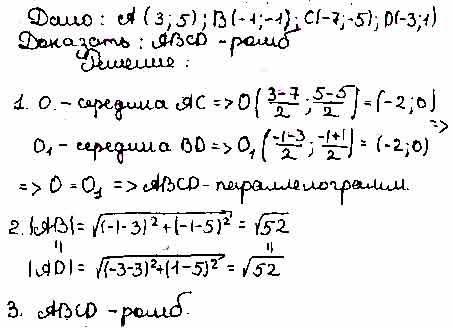 Дано: A(3;5); B(-1;-1); C(-7;-5); D(-3;1)
Доказать: ABCD-ромб
Решение:
1. O - середина AC => O((3-7)/2; (5-5)/2) = (-2;0) =>
O₁ - середина BD => O₁((-1-3)/2; (-1+1)/2) = (-2;0)
=> O = O₁ => ABCD-параллелограмм.
2. |AB| = √((-1-3)²+(-1-5)²) = √52
|| ||
|AD| = √((-3-3)²+(1-5)²) = √52
3. ABCD-ромб.